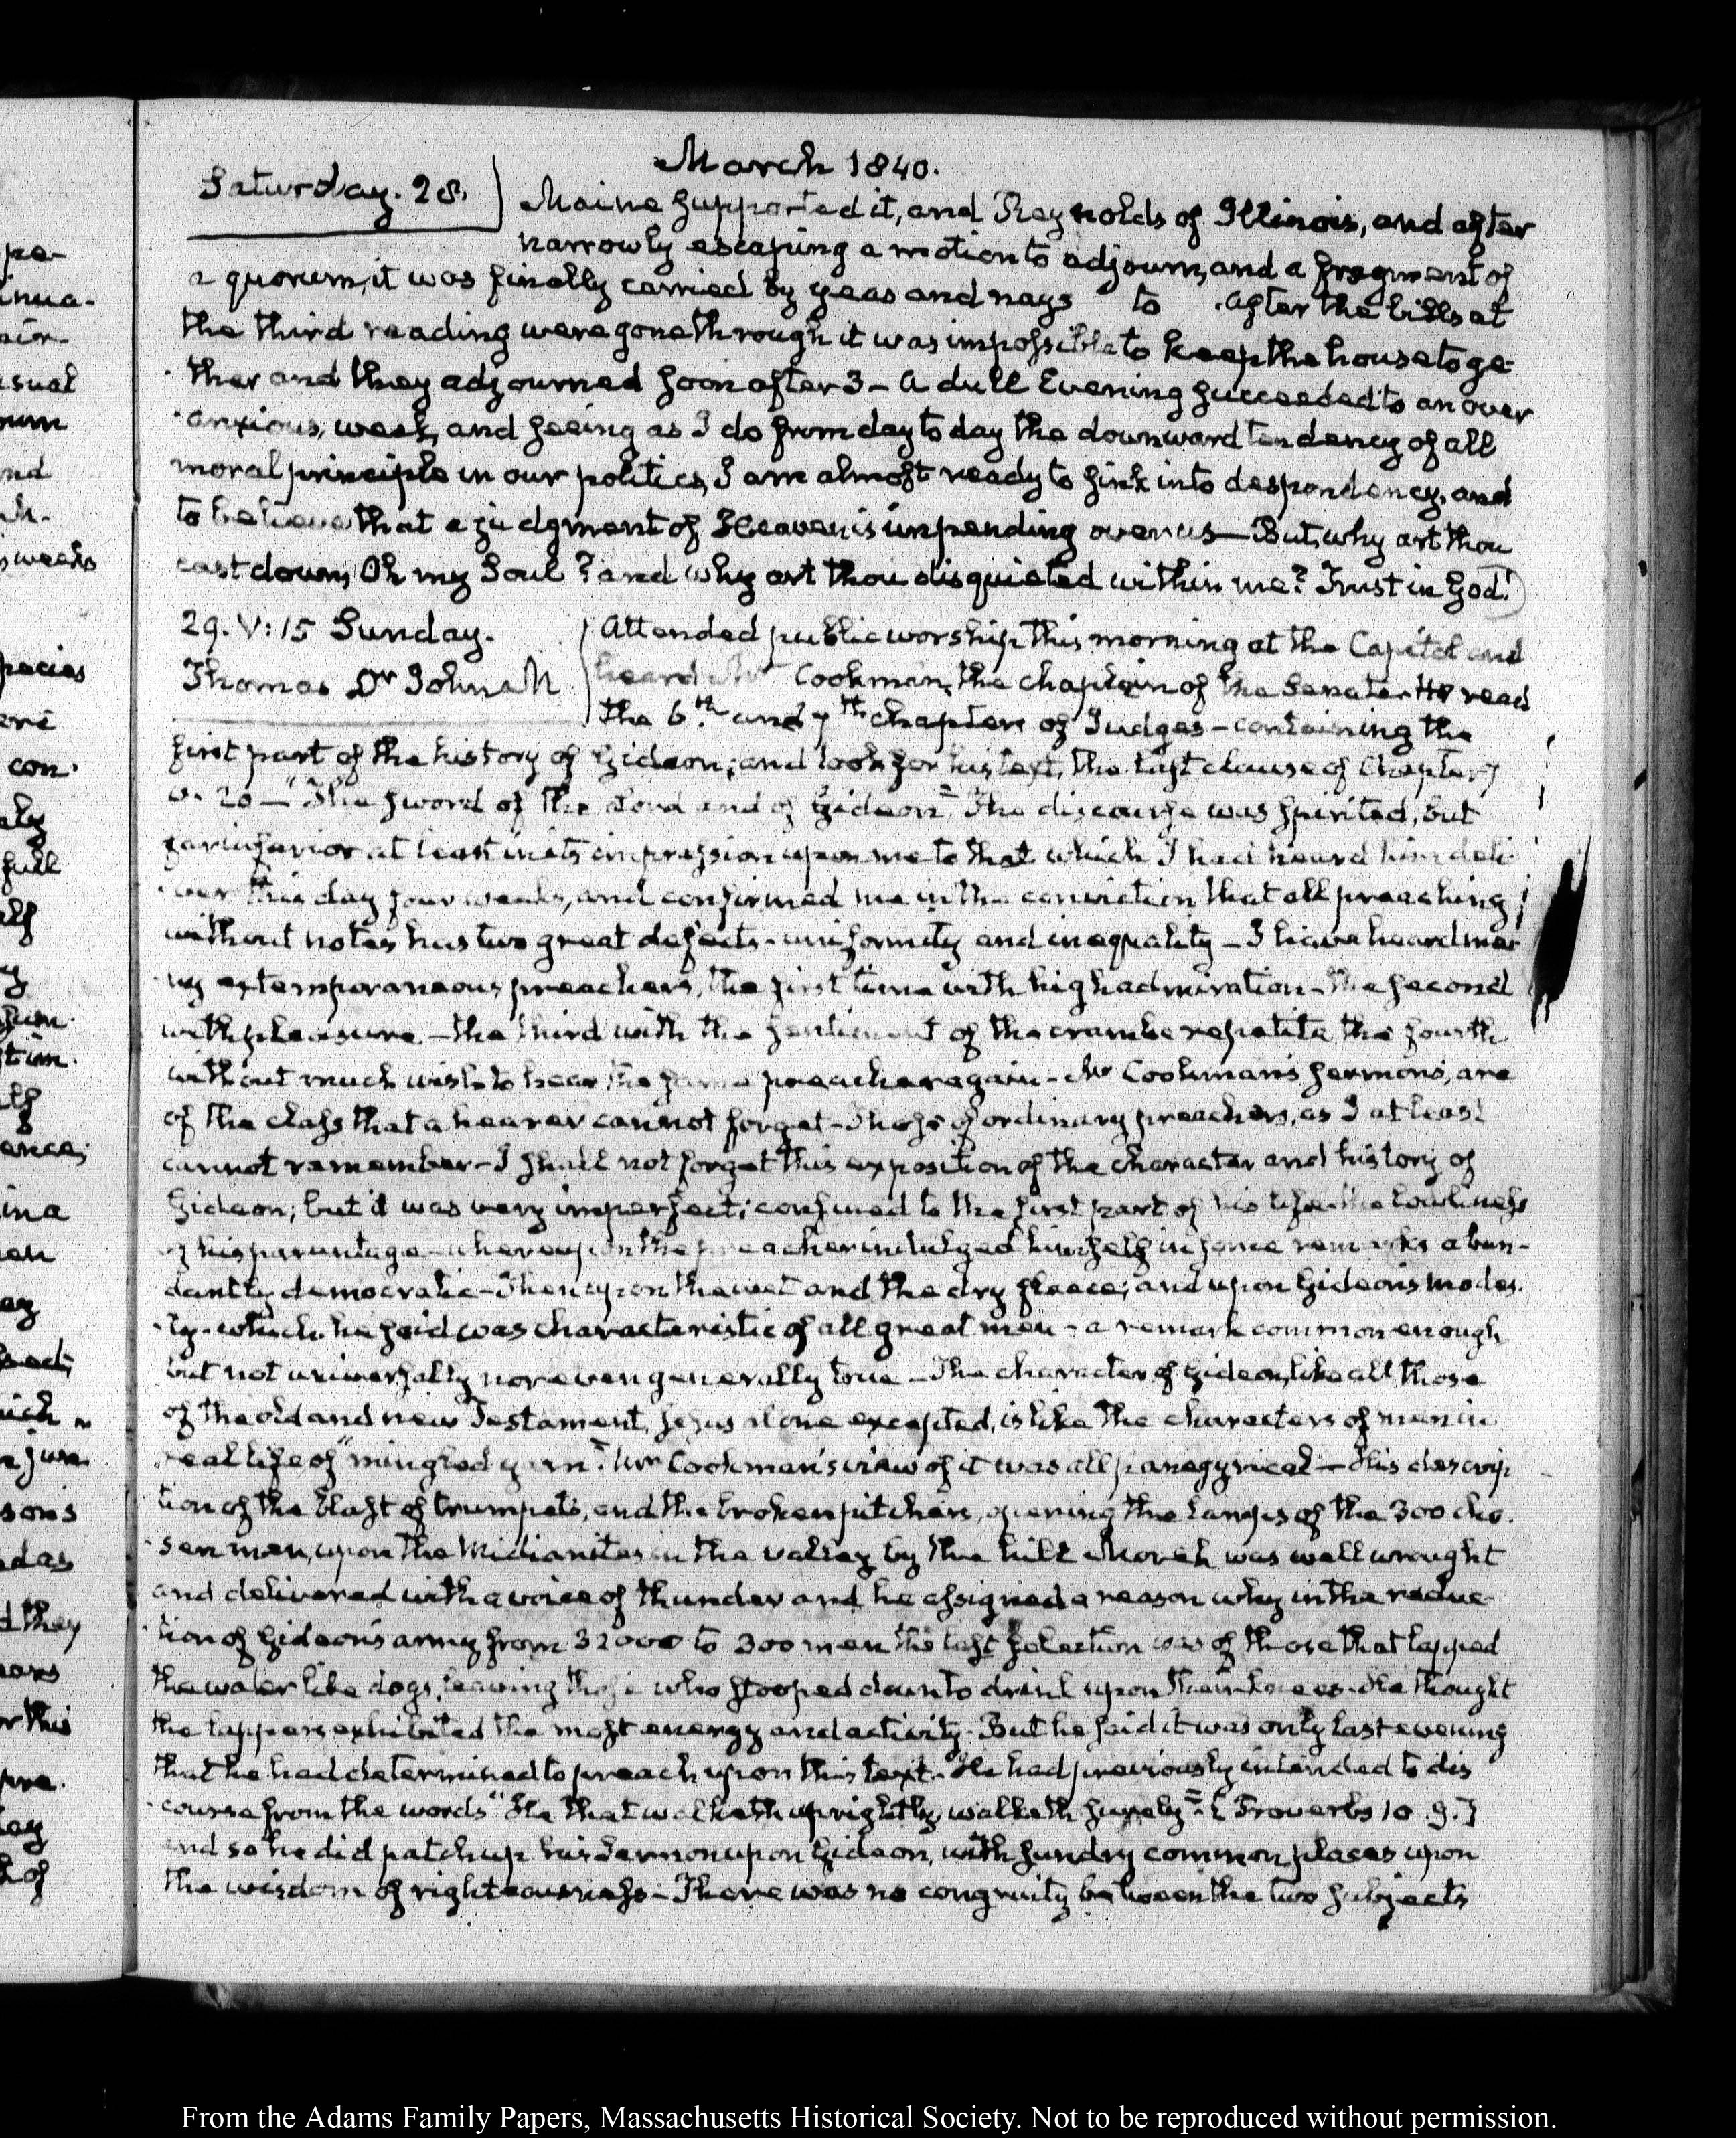 March 1840.
Saturday. 28.
Maine supported it, and Reynolds of Illinois, and after
narrowly escaping a motion to adjourn, and a fragment of
a quorum, it was finally carried by yeas and nays to . After the bills at
the third reading were gone through it was impossible to keep the house toge-
ther and they adjourned soon after 3 – A dull Evening succeeded to an over
anxious, week, and seeing as I do from day to day the downward tendency of all
moral principle in our politics, I am almost ready to sink into despondency, and
to believe that a judgment of Heaven is impending over us — But, why art thou
cast down, Oh my Soul? and why art thou disquieted within me? Trust in God!
29. V:15 Sunday.
Thomas Dr John M.
Attended public worship this morning at the Capitol and
heard Mr Cookman, the chaplain of the Senate. He read
the 6th and 7th chapters of Judges – containing the
first part of the history of Gideon; and took for his text, the last clause of Chapter 7
v. 20 — "The sword of the Lord and of Gideon." The discourse was spirited, but
far inferior at least in its impression upon me to that which I had heard him deli-
ver this day four weeks, and confirmed me in the conviction that all preaching
without notes has two great defects – uniformity and inequality – I have heard ma-
ny extemporaneous preachers, the first time with high admiration – the second
with pleasure – the third with the sentiment of the crambe repetita, the fourth
without much wish to hear the same preacher again – Mr Cookman's sermons, are
of the class that a hearer cannot forget – Those of ordinary preachers, as I at least
cannot remember – I shall not forget this exposition of the character and history of
Gideon; but it was very imperfect; confined to the first part of his life – the lowliness
of his parentage – whereupon the preacher indulged himself in some remarks abun-
dantly democratic – Then upon the wet and the dry fleece; and upon Gideon's modes-
ty – which he said was characteristic of all great men – a remark common enough
but not universally nor even generally true – The character of Gideon, like all those
of the old and new Testament, Jesus alone excepted, is like the characters of men in
real life of "mingled yarn". Mr Cookman's view of it was all panegyrical — His descrip-
tion of the blast of trumpets, and the broken pitchers, opening the lamps of the 300 cho-
sen men, upon the Midianites in the valley by the hill Moreh was well wrought
and delivered with a voice of thunder and he assigned a reason why in the reduc-
tion of Gideon's army from 32000 to 300 men the last selection was of those that lapped
the water like dogs, leaving those who stooped down to drink upon their knees. He thought
the lappers exhibited the most energy and activity. But he said it was only last evening
that he had determined to preach upon this text. He had previously intended to dis
course from the words "He that walketh uprightly, walketh surely". [Proverbs 10.9.]
and so he did patch up his Sermon upon Gideon, with sundry common places upon
the wisdom of righteousness – There was no congruity between the two subjects
From the Adams Family Papers, Massachusetts Historical Society. Not to be reproduced without permission.